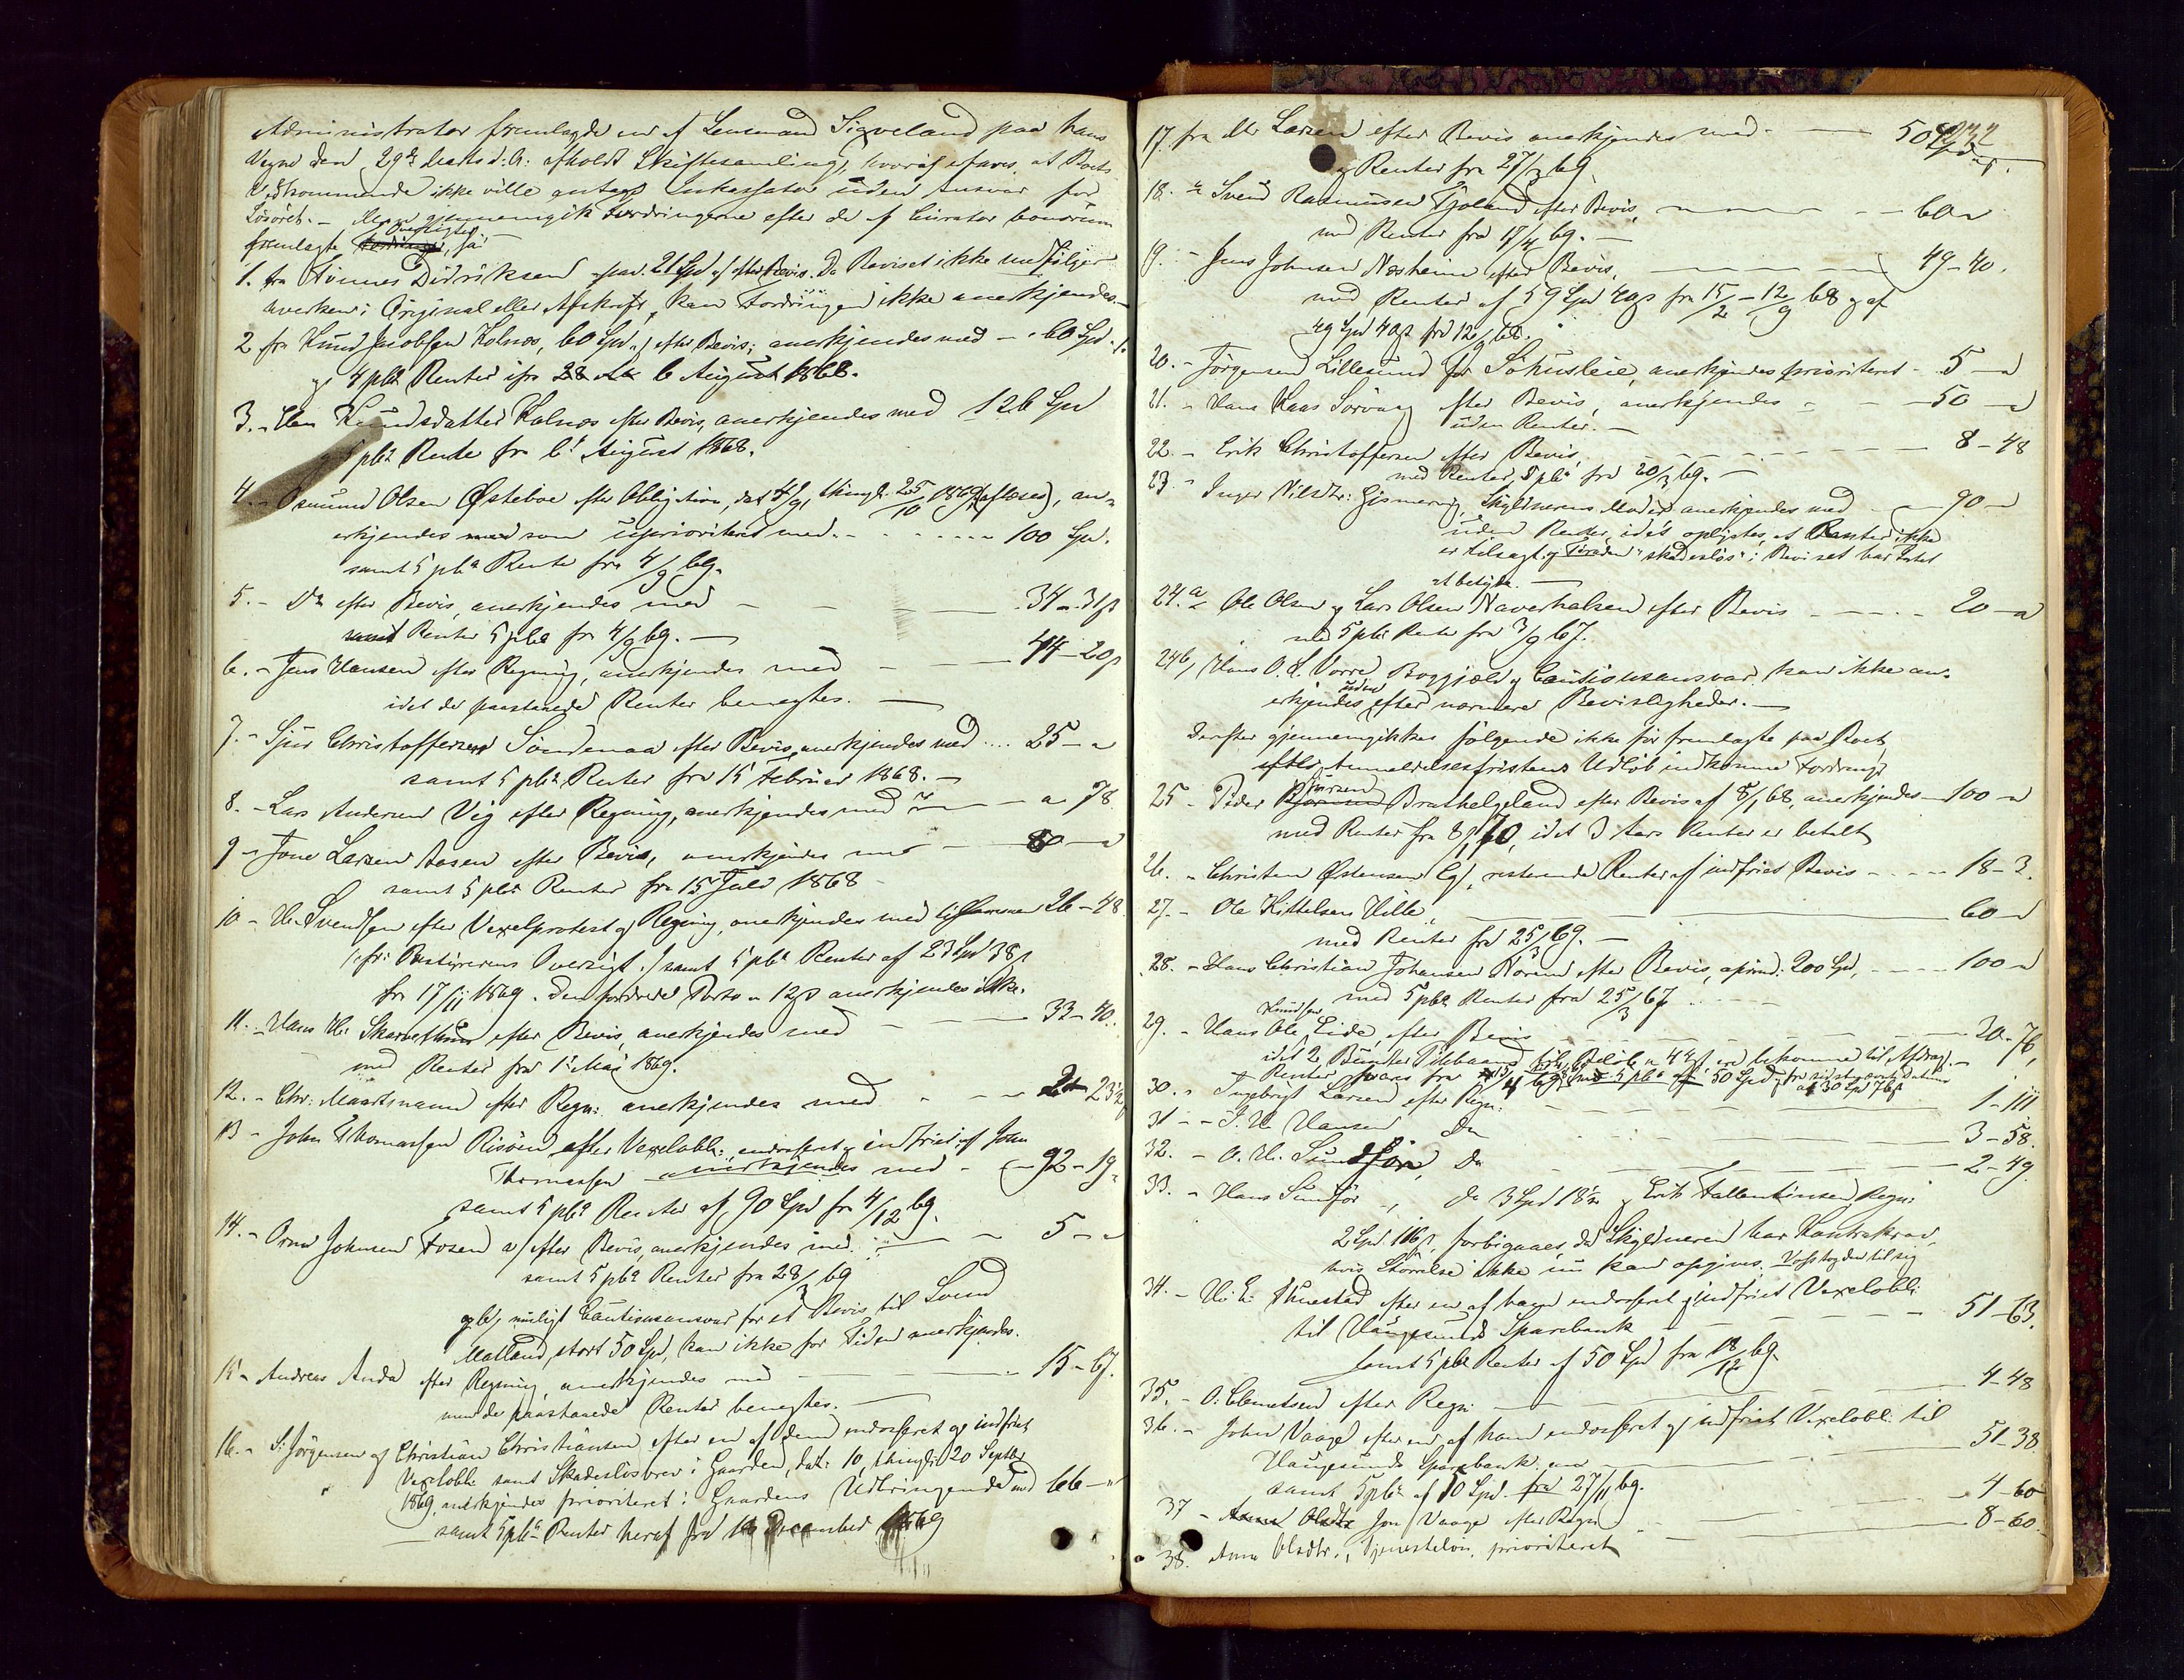 Administrator fremlagde en af Lensmand Sigveland paa hans
Vegne den 29de Marts d: A: afholdt Skiftesamling, hvoraf erfares, at Rets
Vedkommende ikke ville antage Inkassator uden Ansvar for
Løsöret. – Man gjennemgik Fordringerne efter de af Curator bonorum
fremlagte Oversigter, saa:
1. fra Didriksen opad. 21 Spd efter Bevis. Da Beviset ikke medfølger
hverken i Original eller Afskrift, kan Fordringen ikke anerkjendes. –
2 fra Knud Jacobsen Kolnæs, 60 Spd, efter Bevis; anerkjendes med – 60 Spd.
og 4 pCt Renter ifra 6 August 1868.
3. – Knudsdatter Kolnæs efter Bevis, anerkjendes med 126 Spd
5 pCt Rente fra 6t August 1868.
4. – Osmund Olsen Østeboe efter Obligation, dat 4/9, thingl. 25/10 1869 (aflæses), an-
erkjendes som uprioriteret med. – – – – 100 Spd.
samt 5 pCt Rente fra 4/9 69.
5. – Do efter Bevis, anerkjendes med – – – 34 – 31 s
samt Renter 5 pCt fra 4/9 69. –
6. – Jens Hansen efter Regning, anerkjendes med – – 44 – 20 s
idet de paastaaede Renter benegtes. –
7. – Sjur Christoffersen Söndenaa efter Bevis, anerkjendes med .... 25 – "
samt 5 pCt Renter fra 15 Februar 1868. –
8. – Lars Andersen Vig efter Regning, anerkjendes med – " 78
9 – Tone Larsen Aasen efter Bevis, anerkjendes med – 80 – "
samt 5 pCt Renter fra 15 Juli 1868 –
10 – H. Svendsen efter Vexelprotest og Regning, anerkjendes med tilsammen 26 – 48
Oversigt samt 5 pCt Renter af 23 Spd 38 s
fra 17/11 1869. Den fordrede Porto 12 s anerkjendes ikke.
11. – Hans H. efter Bevis, anerkjendes med – – – 33 – 40.
med Renter fra 1t Mai 1869.
12. – Chr: Maartmann efter Regn: anerkjendes med – – 23 1/2
13 – John Thomassen Risöen efter Vexelobl: endosseret & indfriet af John
Thomassen anerkjendes med – – 92 – 19
samt 5 pCt Renter af 90 Spd fra 4/12 69.
14. – Orm Johnsen Fosen a/ efter Bevis, anerkjendes med – – 5 – "
samt 5 pCt Renter fra 28/3 69
og b/, muligt Cautionsansvar for et Bevis til Svend
Matland, stort 50 Spd, kan ikke for Tiden anerkjendes.
15 – Andreas Anda efter Regning, anerkjendes med – – 15 – 67.
men de paastaaede Renter benegtes. –
16. – S. Jörgensen og Christian Christiansen efter en af dem endosseret og indfriet
Vexelobl: samt Skadesløsbrev i Gaarden, dat: 10, thingl: 20 Septbr
1869, anerkjendes prioriteret i Gaardens Udbringende med 66 – "
samt 5 pCt Renter heraf fra 16 December 1869
17. fra M. Larsen efter Bevis anerkjendes med. – – 50
og Renter fra 27/3 69.
18. – Svend Rasmussen Tjoland efter Bevis, – – – 60 "
med Renter fra 17/4 69. –
19. – Jens Johnsen Næsheim efter Bevis, – – – 49 – 40.
med Renter af 59 Spd 40 s fra 15/2 – 12/9 68 og af
49 Spd 40 s fra 12/9 68.
20. – Jörgensen Lillesund for Söhusleie, anerkjendes prioriteret – 5 – "
21. – Hans Haas Sörvaag efter Bevis, anerkjendes – – 50 – "
uden Renter. –
22. – Erik Christoffersen efter Bevis, – – – 8 – 48
med Renter, 5 pCt fra 20/3 69. –
23. – Inger Nilsdtr: Gismervig, Skyldnerens Moder anerkjendes med – 90 – "
uden Renter, idet oplystes, at Renter ikke
er tilsagt, og "skadesløs" i Beviset har Intet
at betyde. –
24. a Ole Olsen og Lars Olsen Naverhalsen efter Bevis – – – 20 – "
med 5 pCt Renter fra 3/9 67.
24 b, Hans O. H. Vorre, Boggjæld og Cautionsansvar kan ikke an-
erkjendes uden efter nærmere Bevisligheder. –
Derefter gjennemgikkes følgende ikke før fremlagte paa Rets
Anmeldelsesfristens Udløb indkomne Fordringer
25 – Peder Bjørnsen Brathelgeland efter Bevis af 8/1 68, anerkjendes – 100 – "
med Renter fra 8/1 70, idet 3 Aars Renter er betalt
26. – Christen Østensen, resterende Renter af indfriet Bevis – – – 18 – 3.
27. – Ole Kittelsen Ville, – – 60 – "
med Renter fra 25/3 69. –
28. – Hans Christian Johansen Noreim efter Bevis, oprind: 200 Spd, – – – 100 – "
med 5 pCt Renter fra 25/3 67
29. – Hans Knudsen Eide, efter Bevis – – – 30 – 76,
idet 2 Bundter er bekomne til Afdrag. –
Renter svares fra 5 pCt af 50 Spd, fra sidstnævnte Datum
af 30 Spd 76 s
30. – Ingebrigt Larsen efter Regn: – – – 1 – 111
31 – – J. H. Hansen Do – – – 3 – 58.
32. – O. H. Sundför, Do – – – 2 – 49
33. – Hans Sundför –, Do 3 Spd 18 s & Erik Fallentinsen Regn:
2 Spd 116 s, forbigaaes, da Skyldneren har Kontrakrav,
hvis Størrelse ikke nu kan opgives.
34. – H. E. Thuestad efter en af ham endosseret & indfriet Vexelobl:
til Haugesunds Sparebank – – – 51 – 63.
samt 5 pCt Renter af 50 Spd fra 18/12 69.
35. – O: Clemetsen efter Regn: – – – 4 – 48
36. – John Vaage efter en af ham endosseret og indfriet Vexelobl: til
Haugesunds Sparebank – – – 51 – 38.
samt 5 pCt af 50 Spd. fra 27/11 69.
37 – Jon Vaage efter Regn – – – 4 – 60
38. Anna Olsdtr., Tjenesteløn, prioriteret – – 8 – 60.